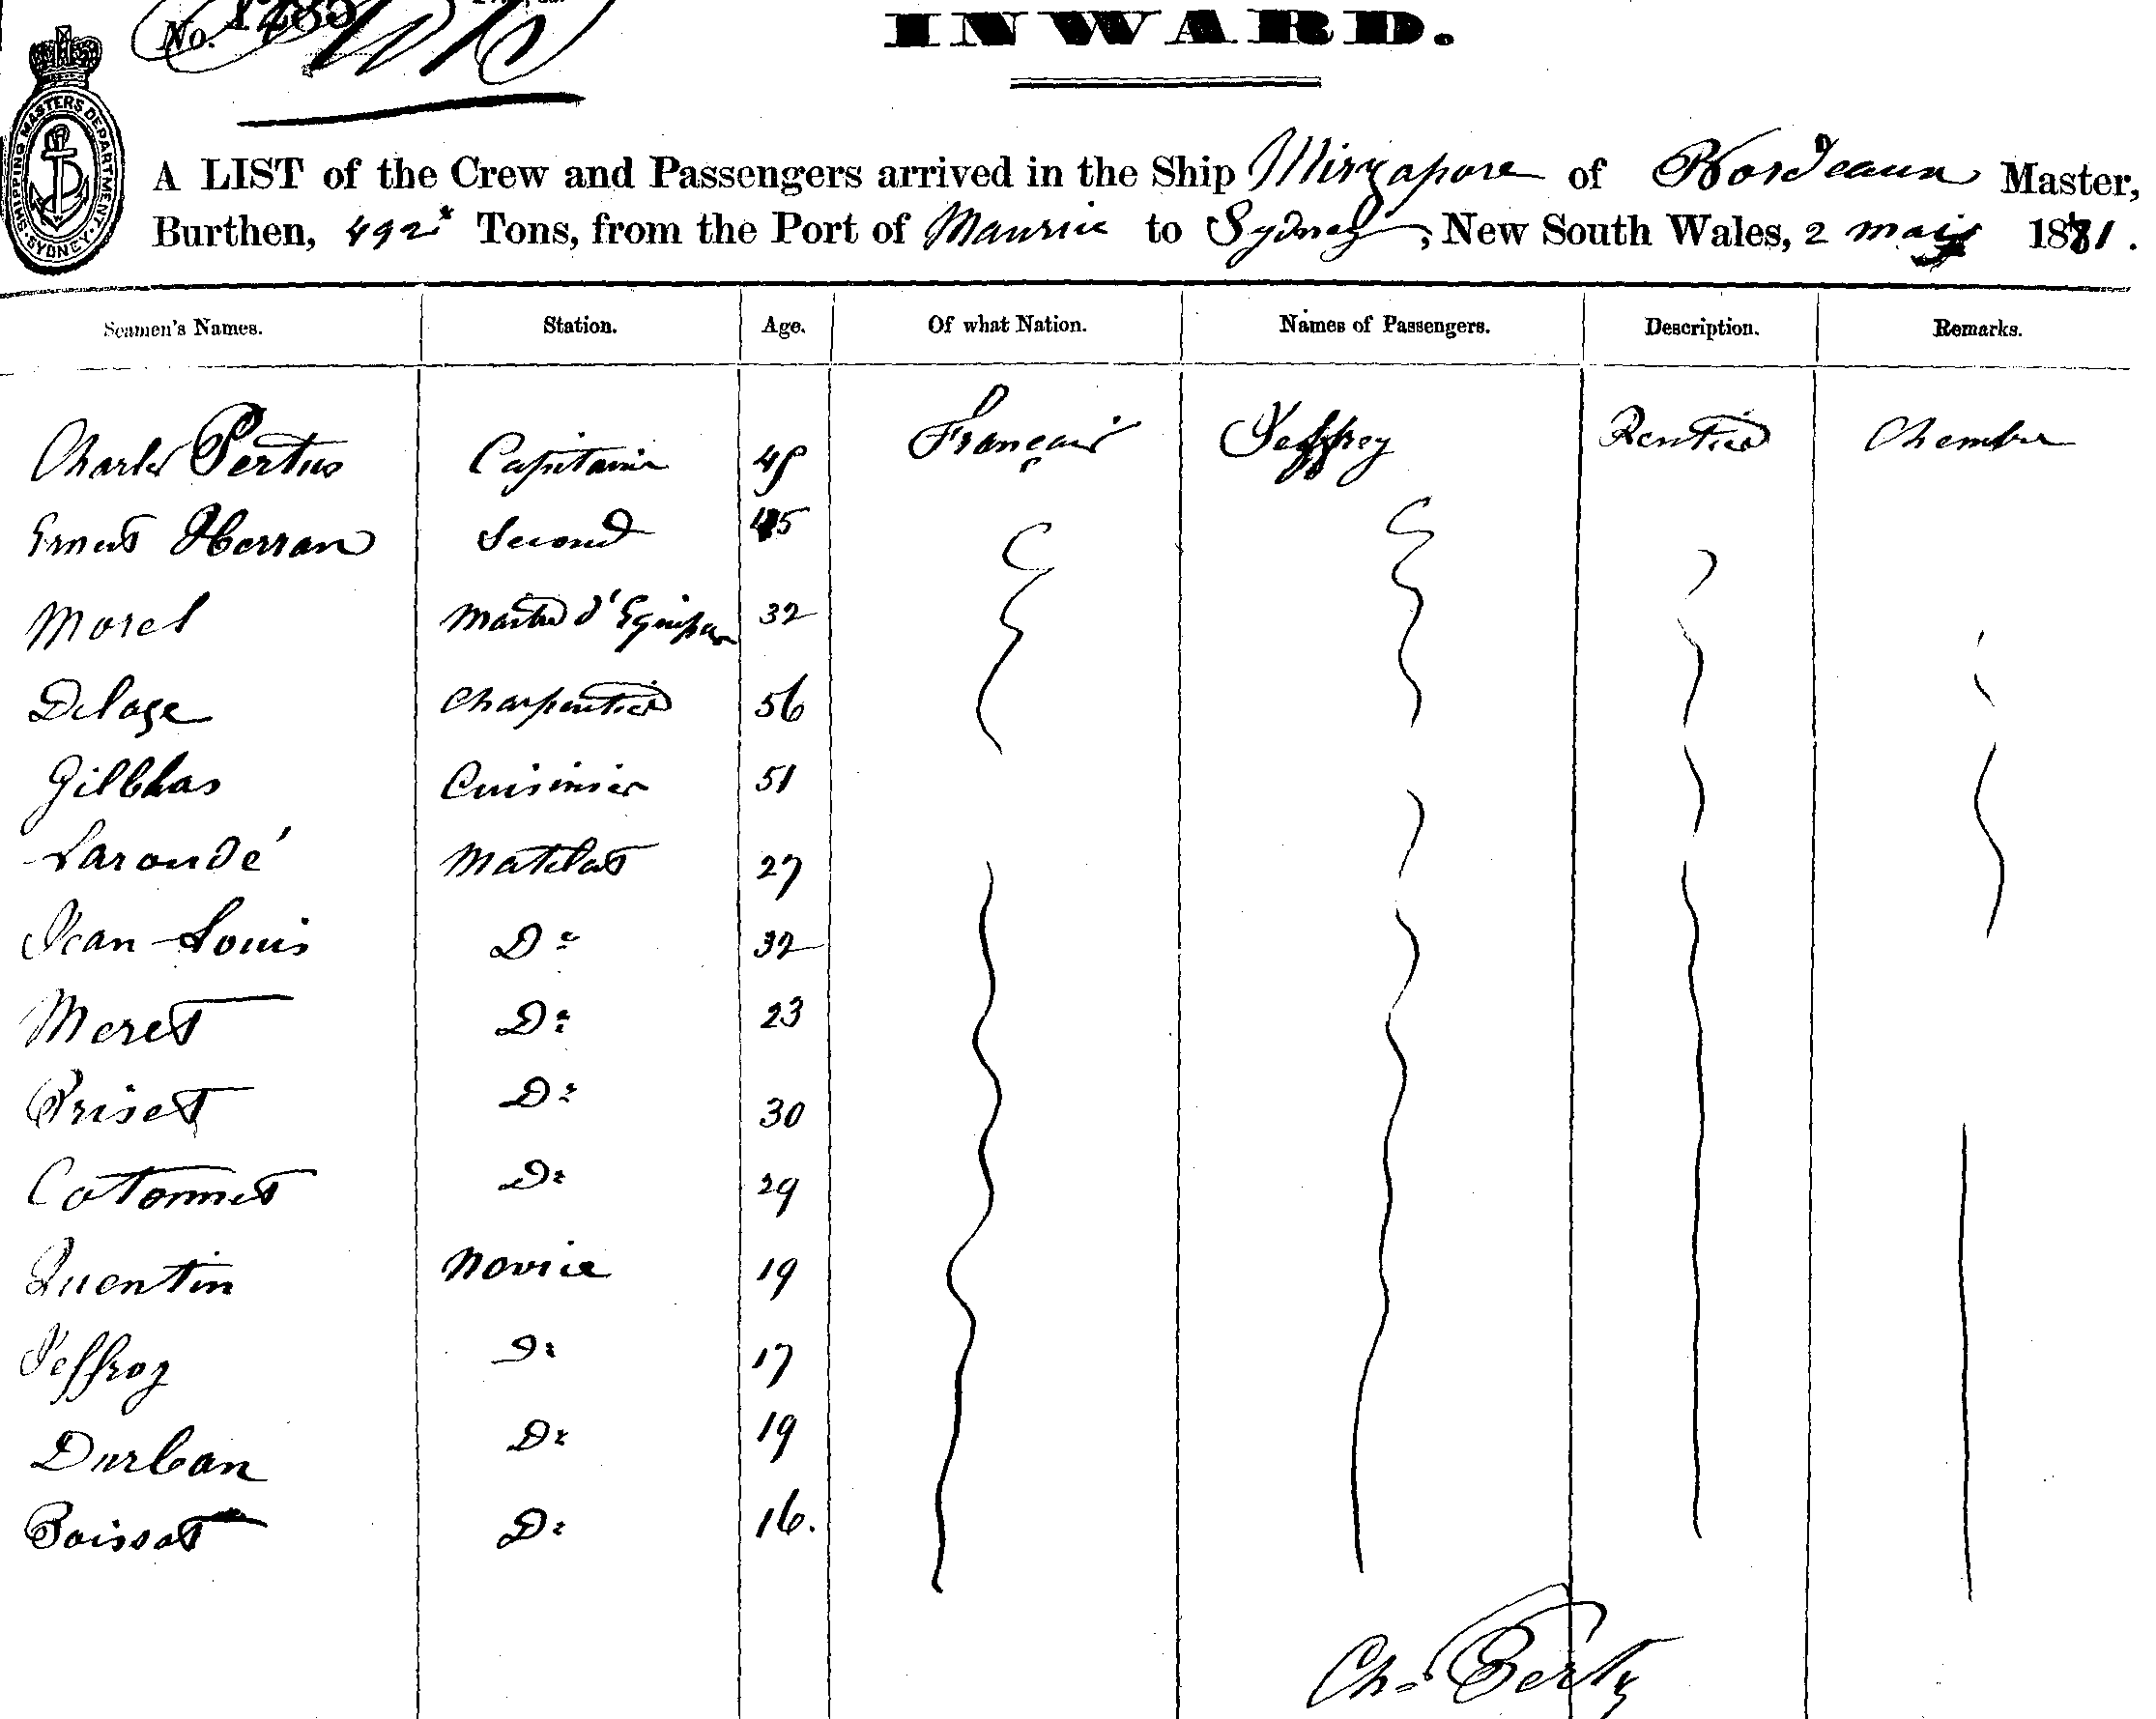 No. 1285
INWARD.
SHIPPING MASTERS DEPARTMENT SYDNEY
A LIST of the Crew and Passengers arrived in the Ship Mirzapore of Bordeaux Master,
Burthen, 492 Tons, from the Port of Maurice to Sydney, New South Wales, 2 mai 1881.
Seamen's Names. Station. Age. Of what Nation. Names of Passengers. Description. Remarks.
Charles Pertus Capitaine 48 Français Jeffrey Rentier Chambre
Ernest Herran Second 45
Morel Maitre d'Equipage 32
Delage Charpentier 56
Gilblas Cuisinier 51
Laroudé Matelot 27
Jean-Louis Do 32
Meret Do 23
Priset Do 30
Catonnet Do 29
Quentin Novice 19
Jeffroy Do 17
Durban Do 19
Boissot Do 16.
Ch=